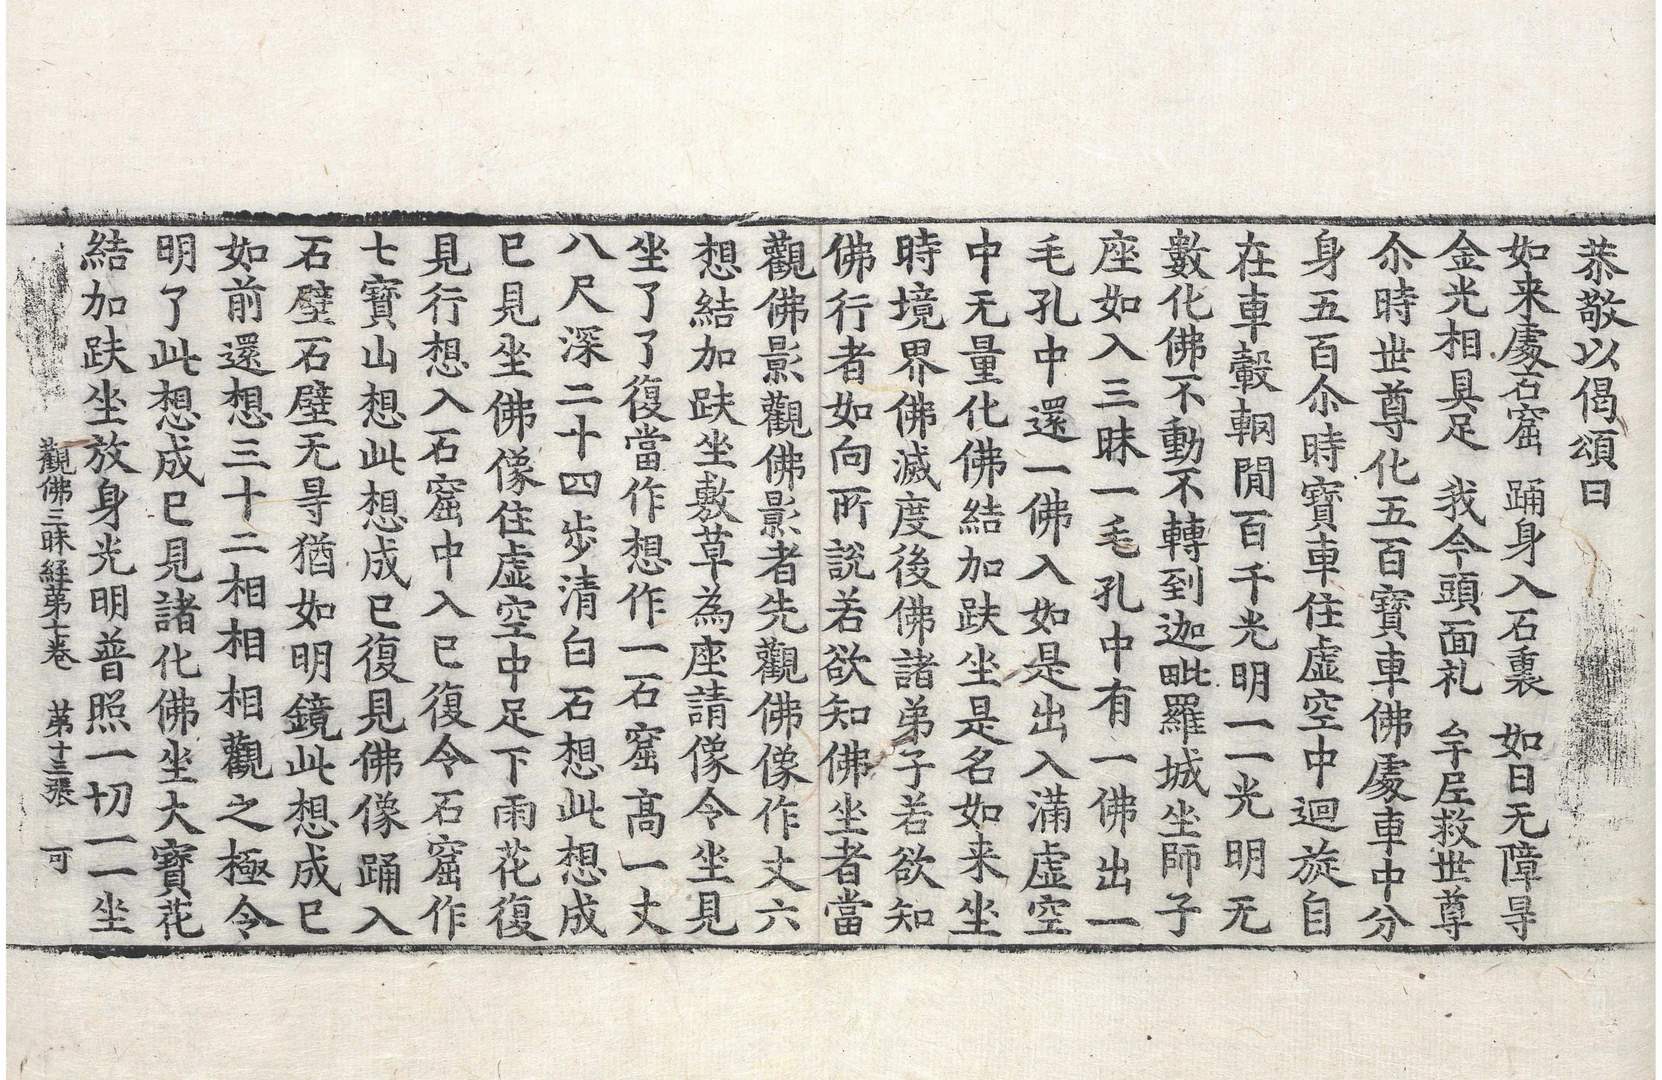 恭敬以偈頌曰
如来處石窟 踊身入石裏 如日无障㝵
金光相具足 我今頭面礼 牟𡰱救世尊
尒時世尊化五百寶車佛處車中分
身五百尒時寶車住虛空中迴旋自
在車轂輞閒百千光明一一光明无
數化佛不動不轉到迦毗羅城坐師子
座如入三昧一毛孔中有一佛出一
毛孔中還一佛入如是出入滿虛空
中无量化佛結加趺坐是名如来坐
時境界佛滅度後佛諸弟子若欲知
佛行者如向所說若欲知佛坐者當
觀佛影觀佛影者先觀佛像作丈六
想結加趺坐敷草為座請像令坐見
坐了了復當作想作一石窟高一丈
八尺深二十四步清白石想此想成
已見坐佛像住虛空中足下雨花復
見行想入石窟中入已復令石窟作
七寶山想此想成已復見佛像踊入
石壁石壁无㝵猶如明鏡此想成已
如前還想三十二相相相觀之極令
明了此想成已見諸化佛坐大寶花
結加趺坐放身光明普照一切一一坐
觀佛三昧経苐七卷 苐十三張 可